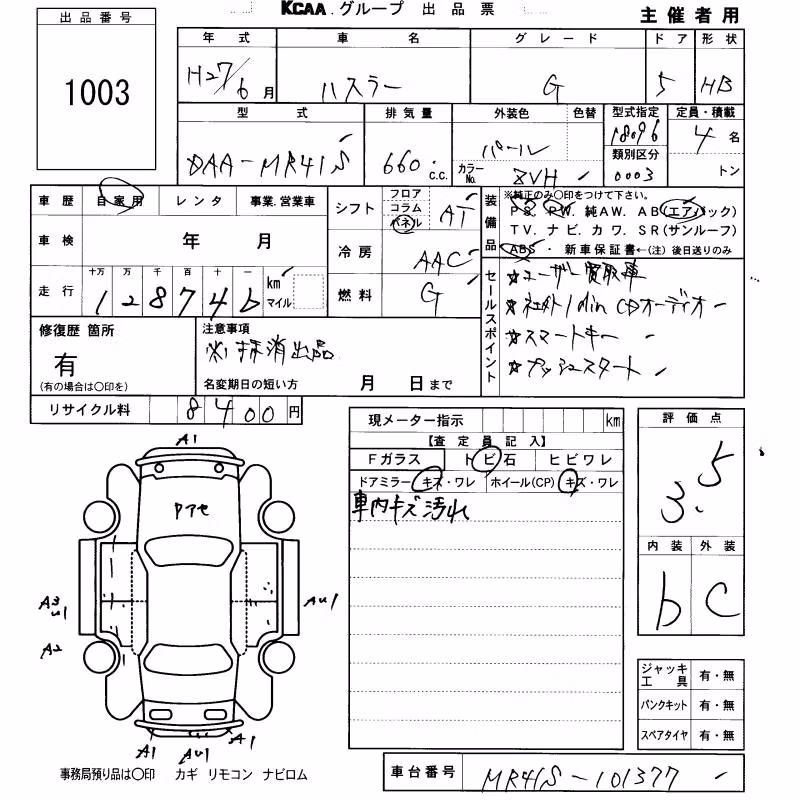 KCAA.グループ 出品票
主催者用
出品番号
1003
年式 車名 グレード ドア 形状
H27/6月 ハスラー G 5 HB
型式 排気量 外装色 色替 型式指定 定員・積載
DAA-MR41S 660 C.C. パール 18096 4 名
カラーNo. ZVH 類別区分 0003 トン
車歴 自家用 レンタ 事業.営業車
シフト フロア コラム パネル AT
装備品 ※純正のみ〇印をつけて下さい。
PS. PW. 純AW. AB(エアバック)
TV. ナビ. カワ. SR(サンルーフ)
ABS・新車保証書←(注) 後日送りのみ
車検 年 月
冷房 AAC
走行 十万 万 千 百 十 一
128746 km マイル
燃料 G
セールスポイント
☆ユーザー買取車
☆社外1din CDオーディオ
☆スマートキー
☆プッシュスタート
修復歴 箇所
有
(有の場合は〇印を)
注意事項
※抹消出品
名変期日の短い方 月 日まで
リサイクル料 8400円
現メーター指示 km
【査定員記入】
Fガラス トビ石 ヒビワレ
ドアミラー キズ・ワレ ホイール(CP) キズ・ワレ
車内キズ汚れ
評価点
3.5
内装 外装
b C
A1
A3
U1
AU1
A2
A1
AU1
A1
ジャッキ工具 有・無
パンクキット 有・無
スペアタイヤ 有・無
事務局預り品は〇印 カギ リモコン ナビロム
車台番号 MR41S-101377